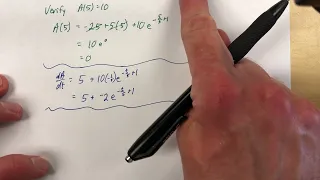 Verify A(5)=10
A(5) = -25+5(5) + 10e^{-5/5+1}
= 10e^0
= 0
dA/dt = 5 + 10(-1/5)e^{-t/5+1}
= 5 + -2e^{-t/5+1}